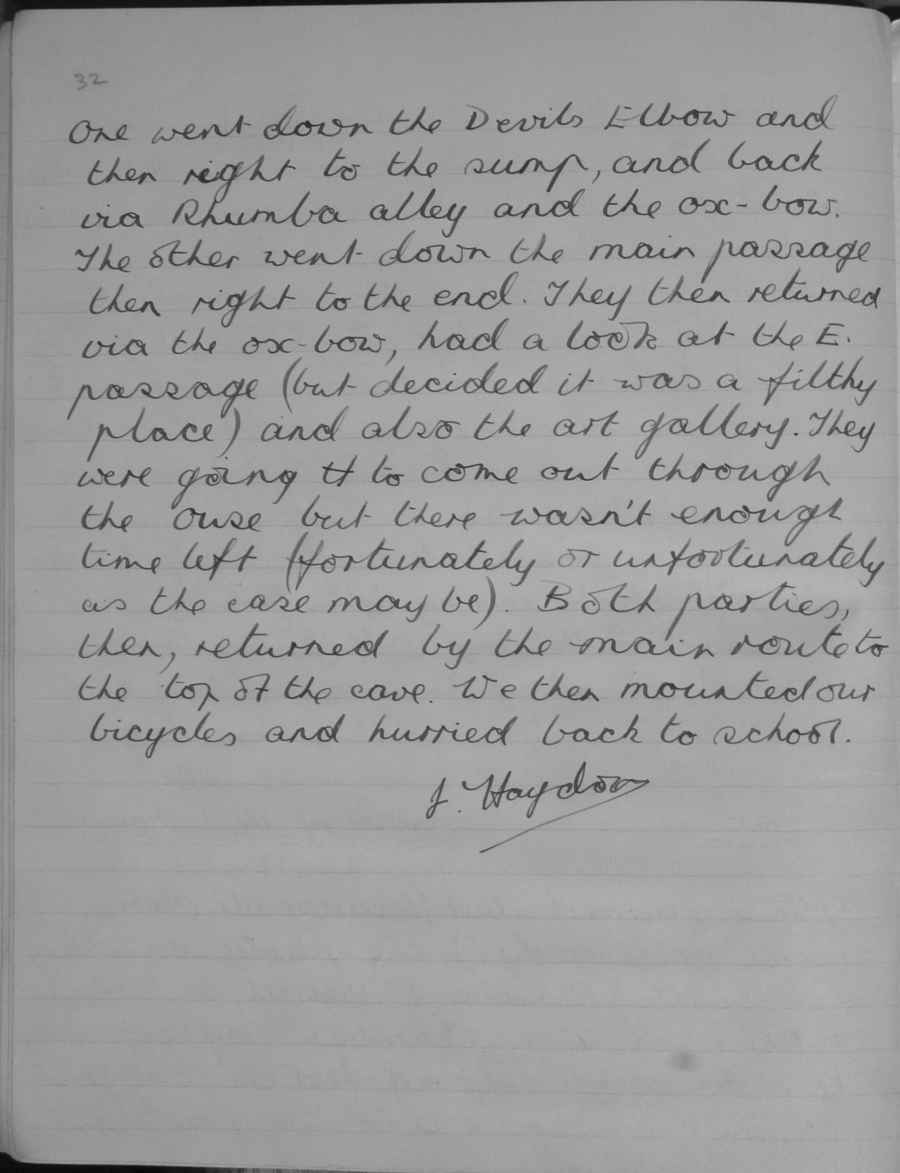 32
One went down the Devils Elbow and
then right to the sump, and back
via Rhumba alley and the ox-bow.
The other went down the main passage
then right to the end. They then returned
via the ox-bow, had a look at the E.
passage (but decided it was a filthy
place) and also the art gallery. They
were going to come out through
the Ouse but there wasn't enough
time left (fortunately or unfortunately
as the case may be). Both parties,
then, returned by the main route to
the top of the cave. We then mounted our
bicycles and hurried back to school.
J. Haydon